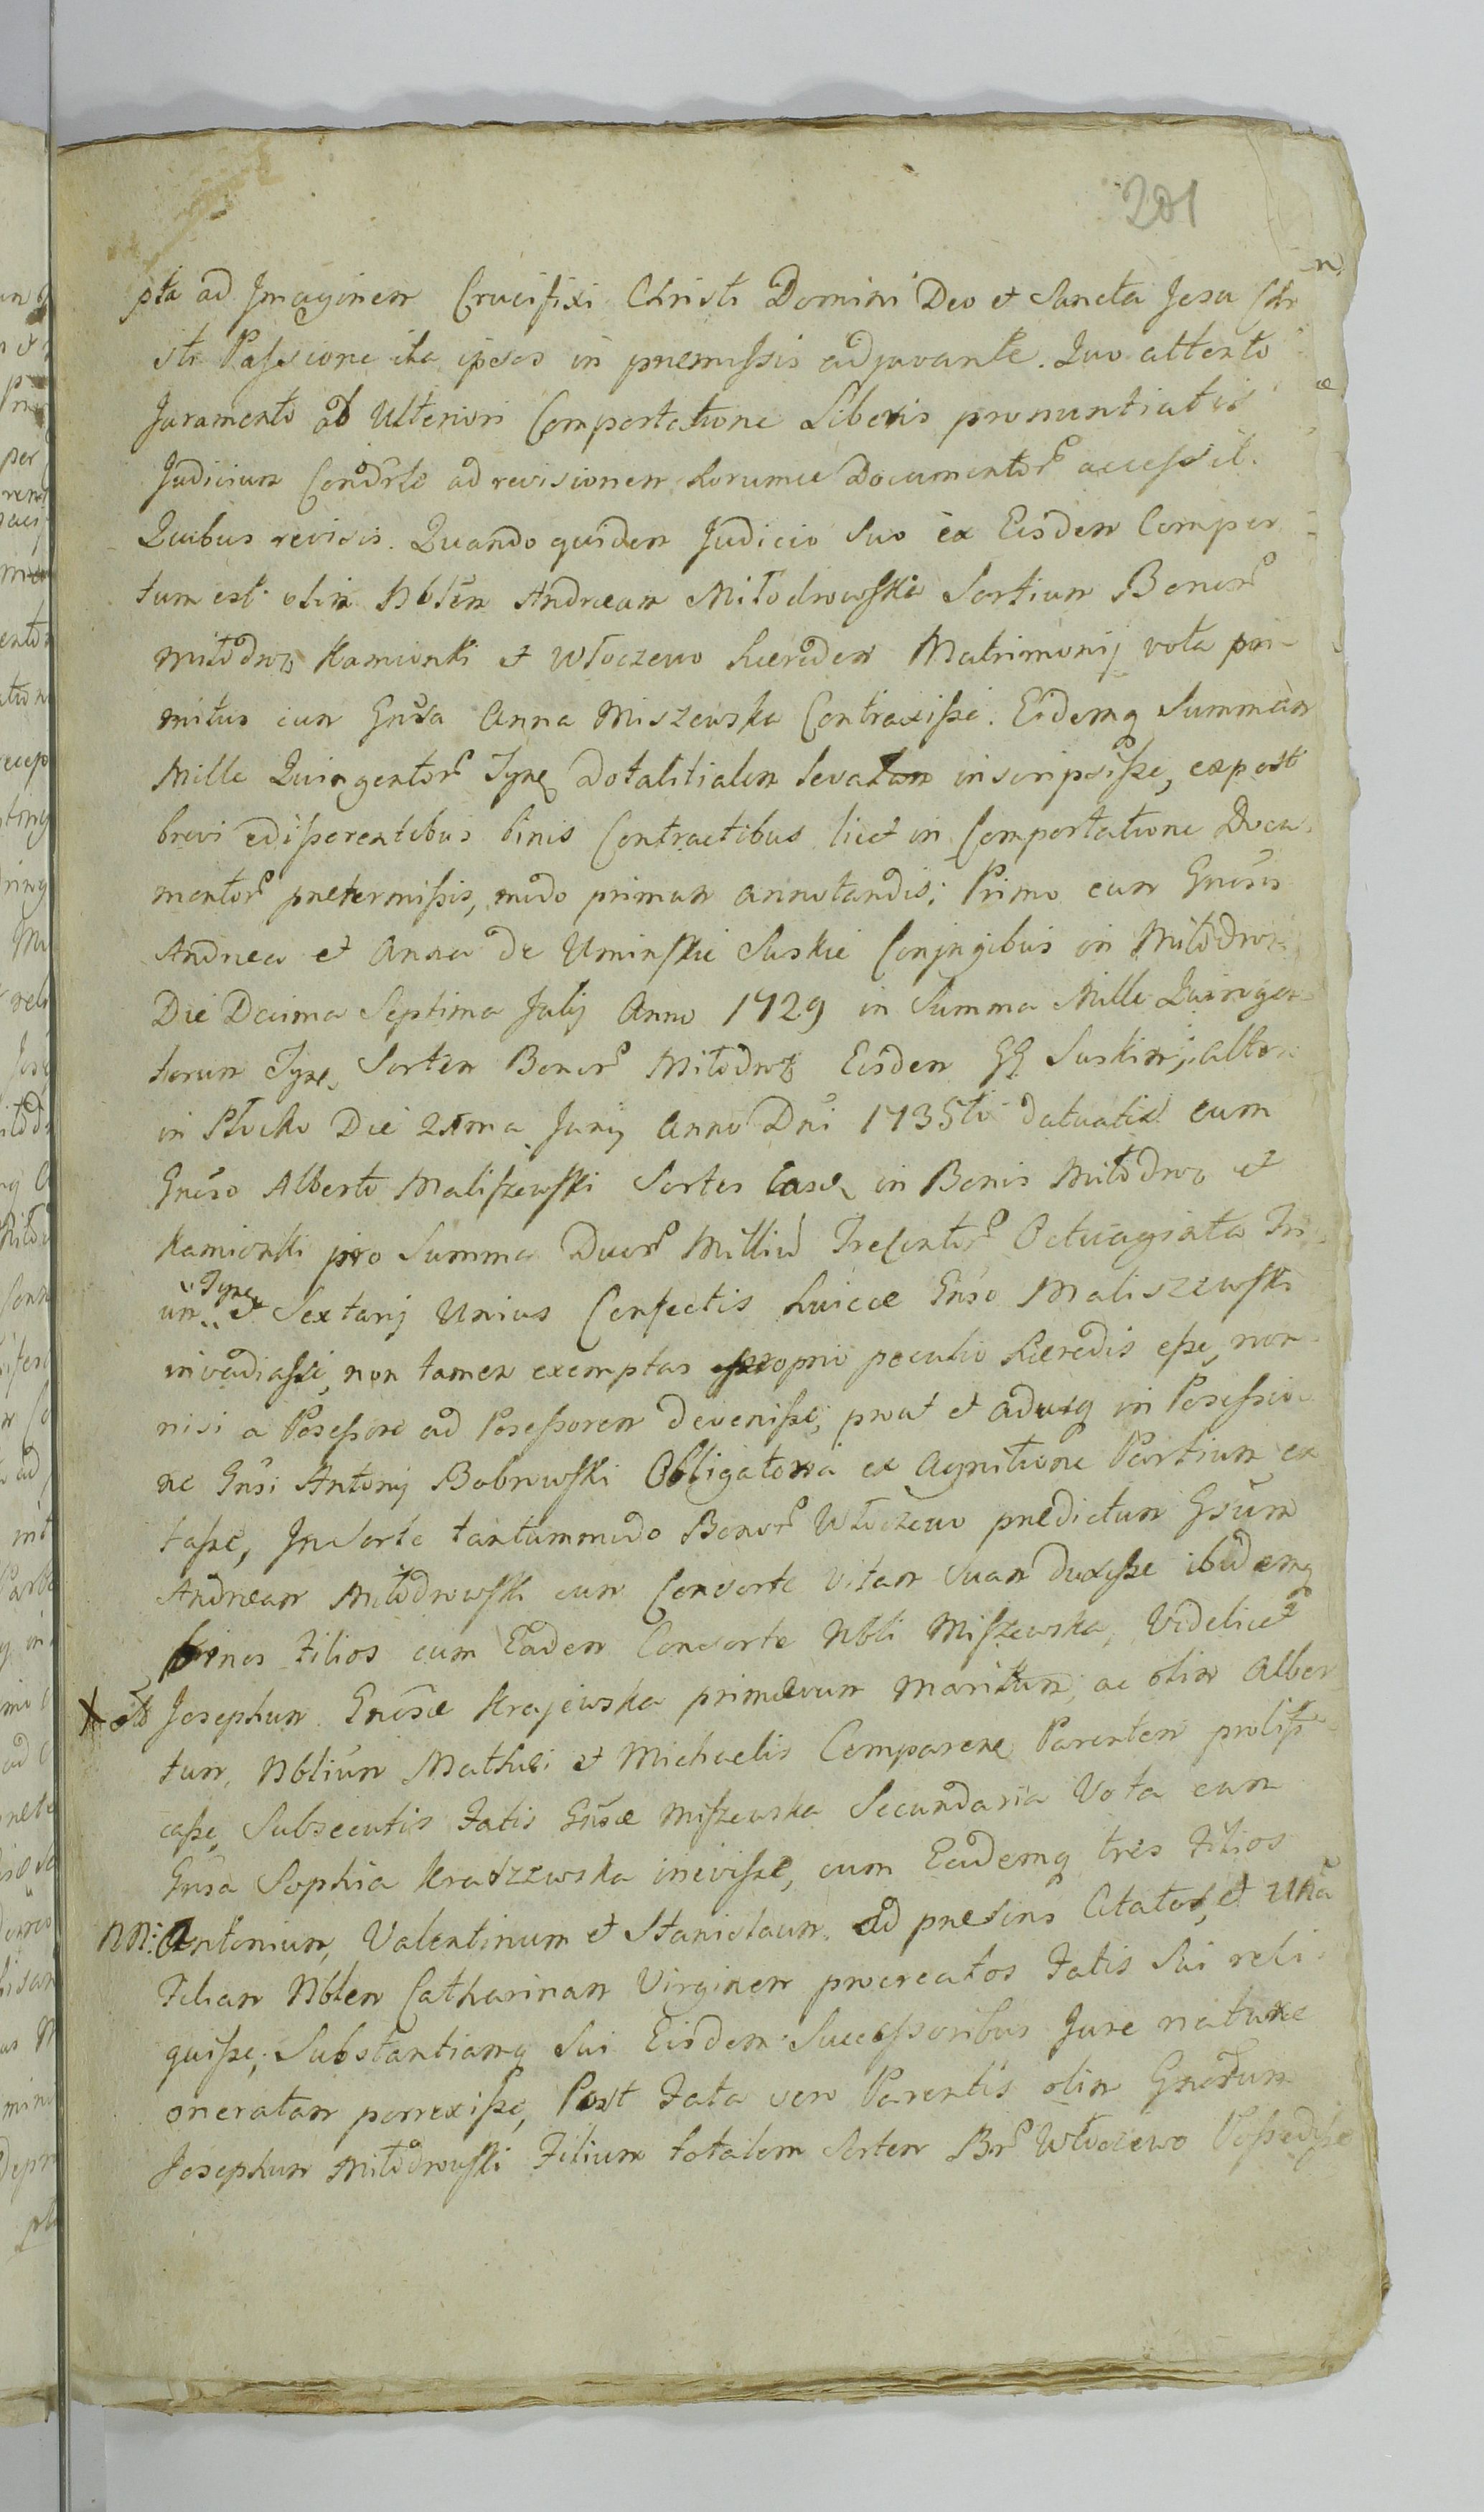 201
pta ad Imaginem Crucifixi Christi Domini Deo et Sancta Jesu Chri
sti Passione ita ipsos in premissis adjuvante. Quo attento
Juramento ab Ulteriori Comportatione Liberis pronuntiatis
Judicium Condrle ad revisionem horumce Documentor accessit.
Quibus revisis. Quando quidem Judicio Suo ex Eisdem Comper
tum est olim Nblem Andream Miłodrowski Sortium Bonor
Miłodroz Kamionki et Włoczewo Hæredem Matrimonij vota pri-
mitus cum Gnsa Anna Miszewska Contraxisse. Eidemq Summam
Mille Quingentor Tynf Dotalitialem levatam inscripsisse, ex post
brevi edisserentibus binis Contractibus licet in Comportatione Docu-
mentor pretermissis, modo primum annotandis; Primo cum Gnosis
Andrea et Anna de Uminskie Suskie Conjugibus in Miłodroz
Die Decima Septima Julij Anno 1729 in Summa Mille Quingen
torum Tynf Sortem Bonor Miłodroz Eisdem GG Suskim, Altero
in Płocko Die 21ma Junij Anno Dni 1735to datuatis cum
Gnoso Alberto Maliszewski Sortes Casu in Bonis Miłodroz et
Kamionki pro Summa Duor Milliu Trecentor Octuaginta Tri
um Tynf et Sextarij Unius Confectis huicce Gnso Maliszewski
invadiasse, non tamen exemptas proprio peculio Hæredis esse, non
nisi a Posessore ad Posessorem devenisse, prout et adusq in Posessio
ne Gnsi Antonij Bobrowski Obligatoria ex Agnitione Partium ex
tasse, In Sorte tantummodo Bonor Włoczewo predictum Gsum
Andream Miłodrowski cum Consorte vitam suam duxisse ibidemq
binos Filios cum Eadem Consorte Nbli Miszewska, Videlicet
Josephum Gnosæ Krajewska primævum Maritum, ac olim Alber
tum, Nblium Mathei et Michaelis Comparen Parentem prolifi
casse, Subsecutis Fatis Gnsæ Miszewska Secundaria Vota cum
Gnsa Sophia Kraszewska inivisse, cum Eademq tres Filios
NN: Antonium, Valentinum et Stanislaum ad presens Citatos, et Una
Filiam Nblem Catharinam Virginem procreatos Fatis Sui reli
quisse, Substantiamq Sui Eisdem Successoribus Jure nature
oneratam porrexisse, Post Fata vero Parentis olim Gnosum
Josephum Miłodrowski Filium totalem Sortem Br Włoczewo Possedisse